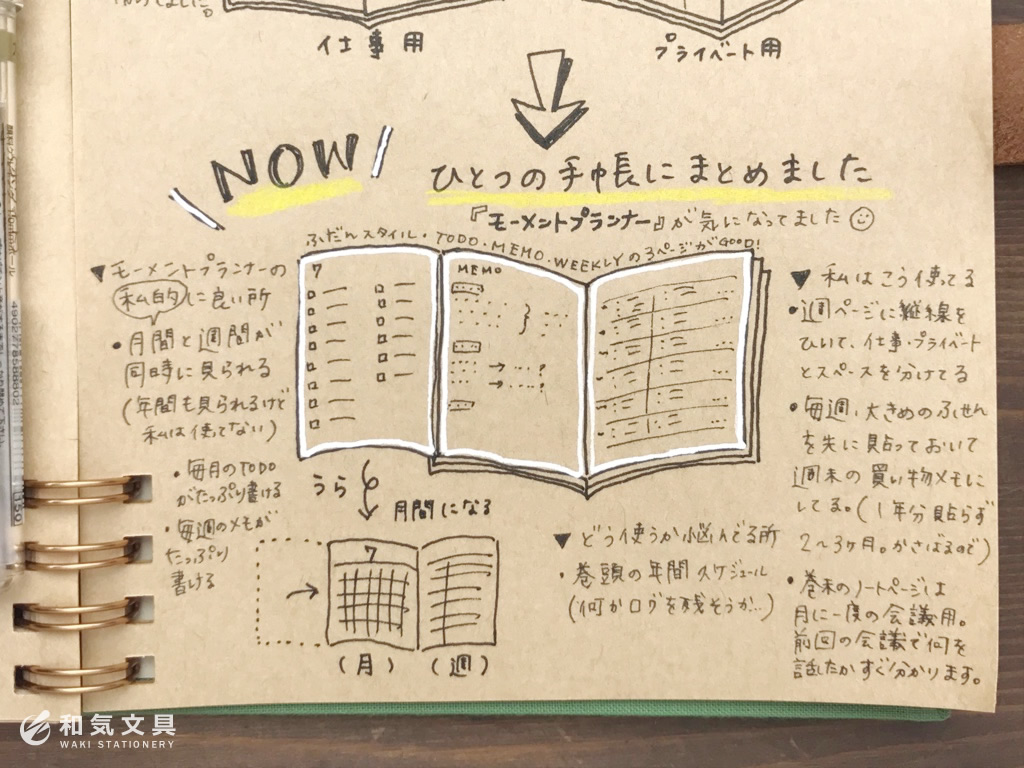 仕事用
プライベート用
NOW
ひとつの手帳にまとめました
『モーメントプランナー』が気になってました
ふだんスタイル・TODO・MEMO・WEEKLYの3ページがGOOD!
▼モーメントプランナーの
私的に良い所
・月間と週間が
同時に見られる
(年間も見られるけど
私は使てない)
・毎月のTODO
がたっぷり書ける
・毎週のメモが
たっぷり
書ける
7
MEMO
うら
月間になる
7
(月) (週)
▼どう使うか悩んでる所
・巻頭の年間スケジュール
(何かログを残そうか…)
▼私はこう使ってる
・週ページに縦線を
ひいて、仕事・プライベート
とスペースを分けてる
・毎週、大きめのふせん
を先に貼っておいて
週末の買い物メモに
してる。(1年分貼らず
2〜3ヶ月。かさばるので)
・巻末のノートページは
月に一度の会議用。
前回の会議で何を
話したかすぐ分かります。
4902778588802
和気文具
WAKI STATIONERY